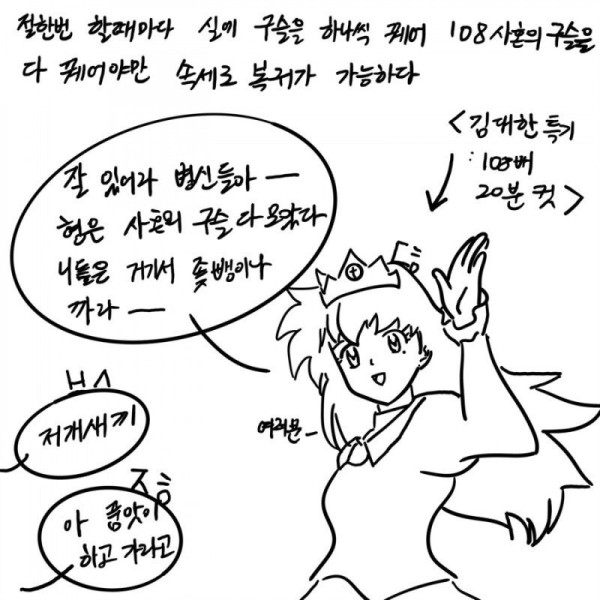 절한번 할때마다 실에 구슬을 하나씩 꿰어 108사혼의구슬을
다 꿰어야만 속세로 복귀가 가능하다
<김대한 특기
: 108배
20분 컷>
잘 있어라 병신들아ㅡ
형은 사혼의 구슬 다 모았다
니들은 거기서 좆뺑이나
까라ㅡ
등
여러분~
ㅂㅅ
저개새끼
ㅈ흥
아 품앗이
하고 가라고